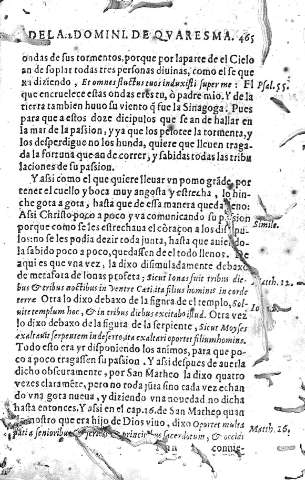 DE LA .2. DOMINI. DE QVARESMA. 465
ondas de sus tormentos, porque por la parte de el Cielo
an de soplar todas tres personas diuinas, como el se que
xa diziendo, Et omnes fluctus tuos induxisti super me:
Psal. 55.
que encruelece estas ondas eres tu, ò padre mio. Y de la
tierra tambien huuo su viento q̃ fue la Sinagoga: Pues
para que a estos doze dicipulos que se an de hallar en
la mar de la passion, y ya que los pelotee la tormenta, y
los desperdigue no los hunda, quiere que lleuen traga
da la fortuna que an de correr, y sabidas todas las tribu
laciones de su passion.
Y assi como el que quiere lleuar vn pomo grãde, por
tener el cuello y boca muy angosta y estrecha, lo hin-
che gota a gota, hasta que de essa manera queda
Assi Christo poco a poco y va comunicando su passion
Simile.
porque como se les estrechaua el coraçon a los disci
pulos: no se les podia dezir toda junta, hasta que auiendo
la sabido poco a poco, quedassen de el todo llenos. De
aqui es que vna vez, la dixo disimuladamente debaxo
de metafora de Ionas profeta, Sicut Ionas fuit tribus die-
bus & tribus noctibus in ventre Cæti ita filius hominis in corde
Matth. 12.
terræ. Otra lo dixo debaxo de la figura de el templo, Sol-
uite templum hoc, & in tribus diebus excitabo illud. Otra vez
lo dixo debaxo de la figura de la serpiente, Sicut Moyses
exaltauit serpentem in deserto, ita exaltari oportet filium hominis.
Todo esto era yr disponiendo los animos, para que po-
co a poco tragassen su passion. Y assi despues de auerla
dicho obscuramente, por San Matheo la dixo quatro
vezes claramẽte, pero no toda jũta sino cada vez echan
do vna gota nueua, y diziendo vna nouedad no dicha
hasta entonces. Y assi en el cap. 16. de San Matheo quan
nostro que era hijo de Dios viuo, dixo Oportet multa
Matth. 16,
pati a senioribus & scribis & principibus sacerdotum, & occidi